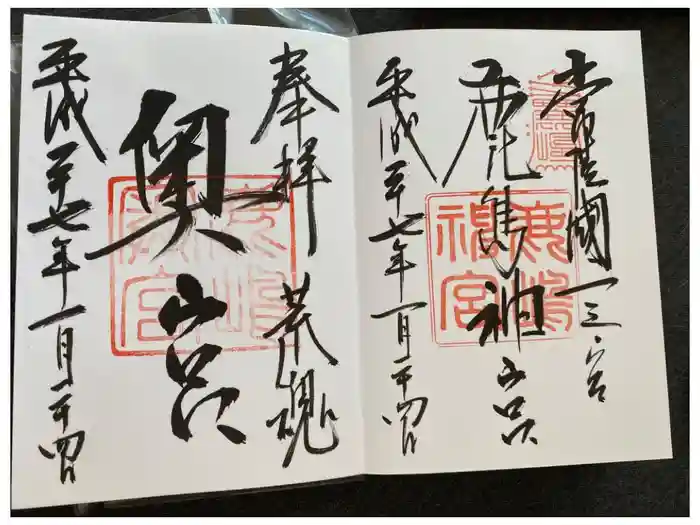 常陸國一之宮
鹿島神宮
平成二十七年一月二十四日
奉拝 荒魂
奥宮
平成二十七年一月二十四日
鹿嶋神宮